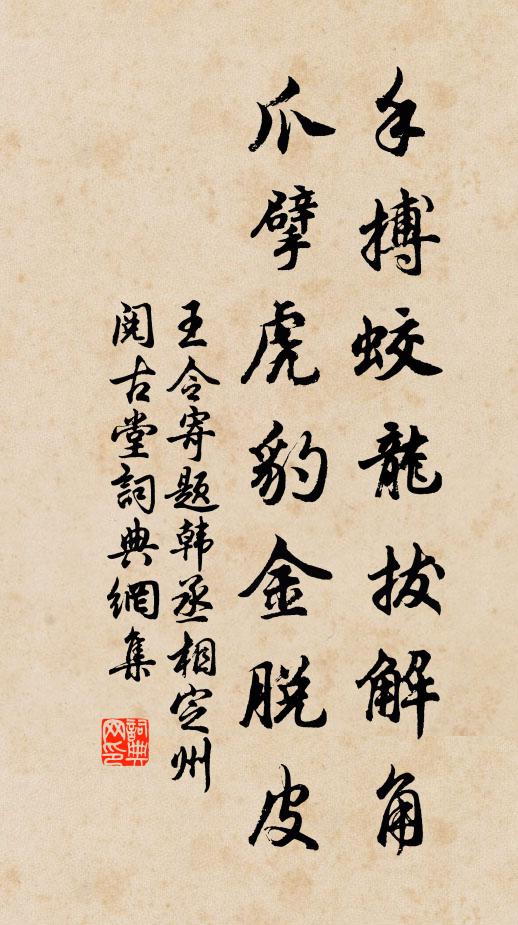 手搏蛟龍拔解角
爪擘虎豹金脫皮
王令寄題韩丞相定州
閱古堂詞典網集
詞典
网印